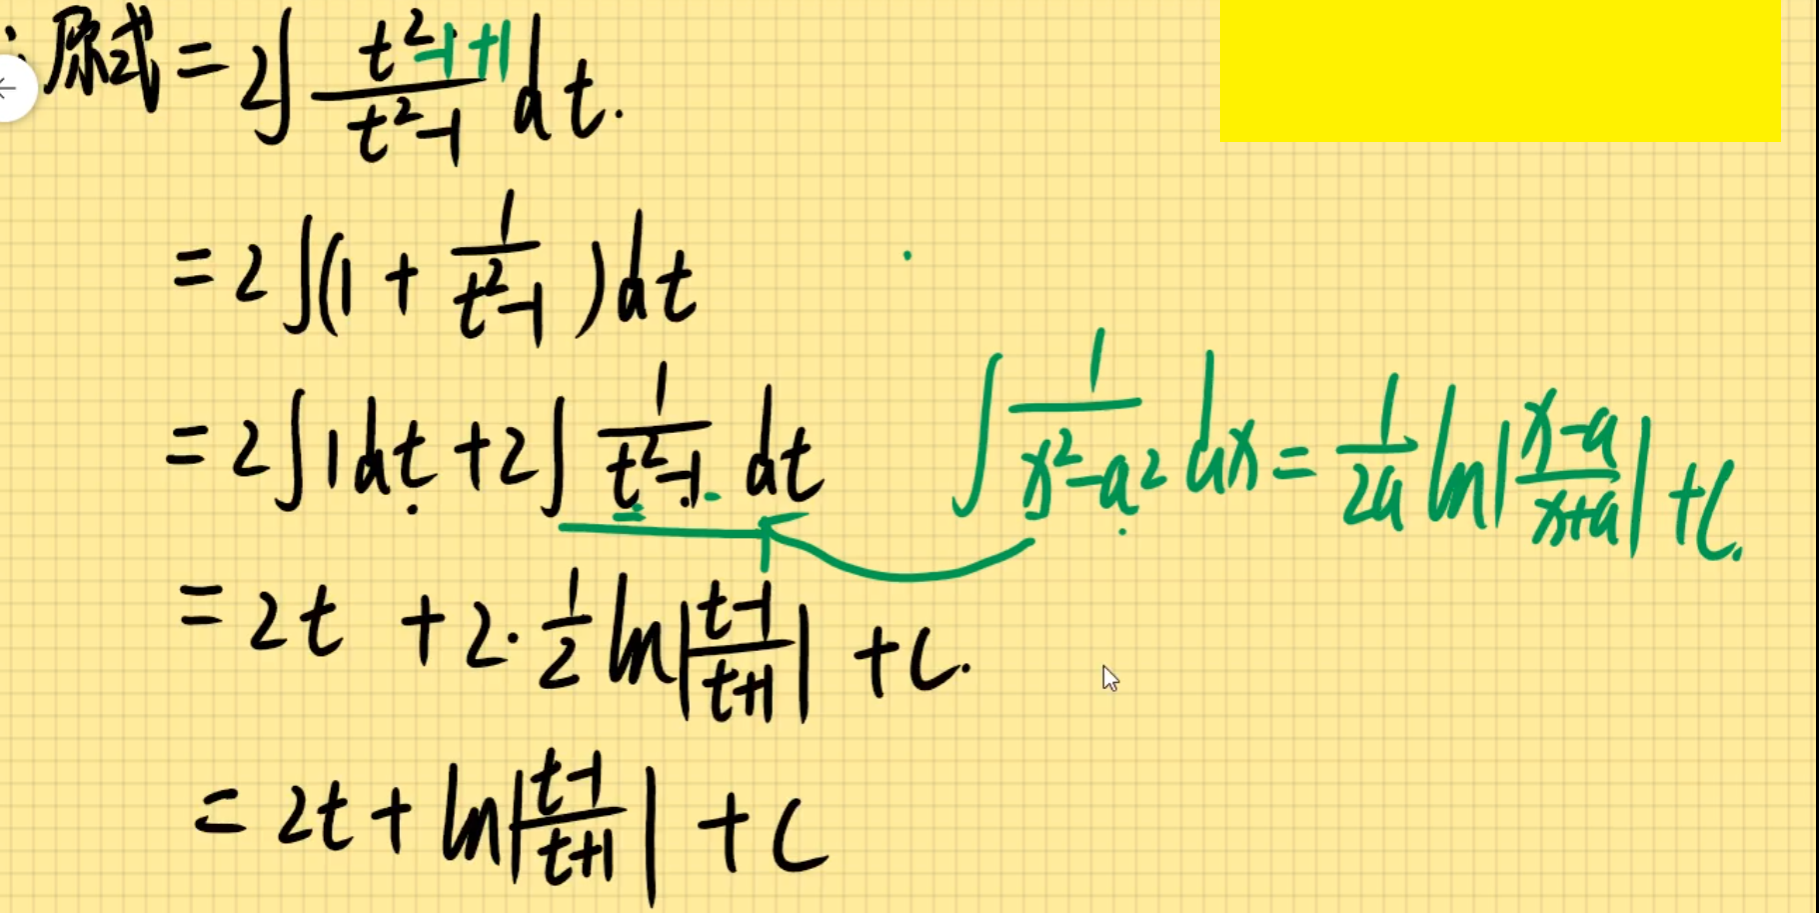 ∴原式 = 2∫ (t²-1+1)/(t²-1) dt.
= 2∫(1 + 1/(t²-1))dt
= 2∫1dt + 2∫ 1/(t²-1) dt
∫ 1/(x²-a²) dx = 1/(2a) ln|(x-a)/(x+a)| + C.
= 2t + 2·1/2 ln|(t-1)/(t+1)| + C.
= 2t + ln|(t-1)/(t+1)| + C